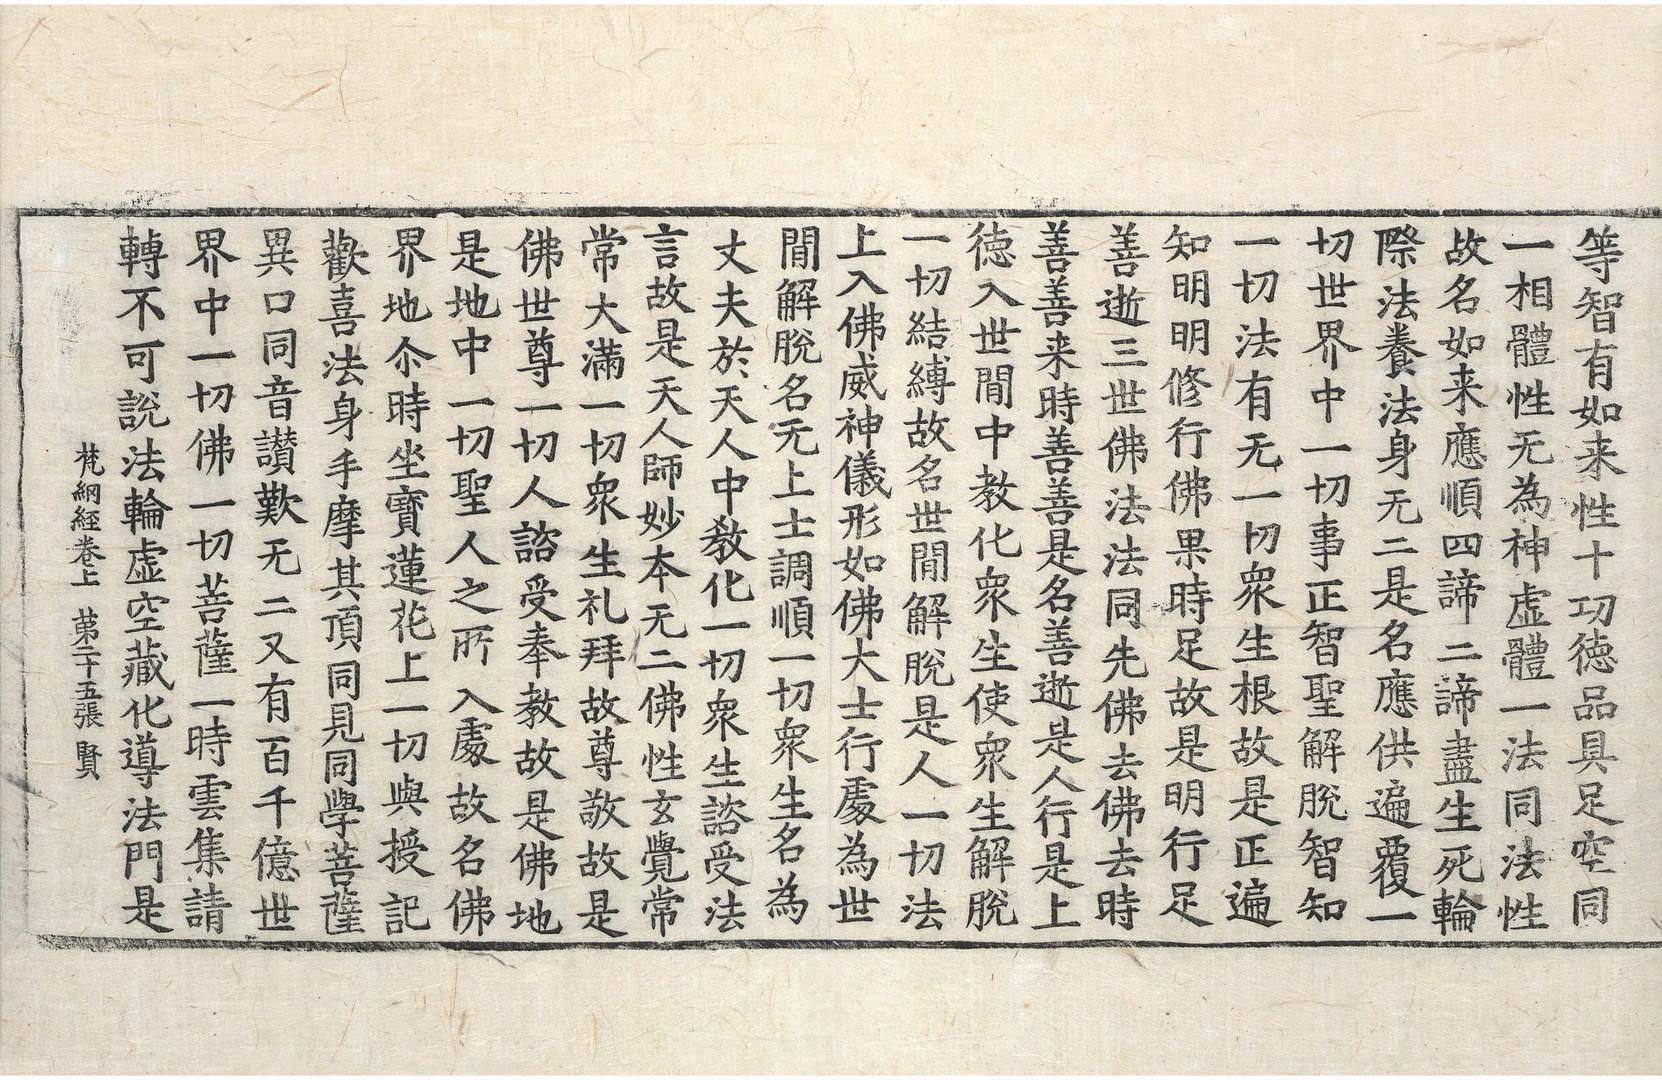 等智有如来性十功徳品具足空同
一相體性无為神虛體一法同法性
故名如来應順四諦二諦盡生死輪
際法養法身无二是名應供遍覆一
切世界中一切事正智聖解脫智知
一切法有无一切衆生根故是正遍
知明明修行佛果時足故是明行足
善逝三世佛法法同先佛去佛去時
善善来時善善是名善逝是人行是上
徳入世間中教化衆生使衆生解脫
一切結縛故名世間解脫是人一切法
上入佛威神儀形如佛大士行處為世
間解脫名无上士調順一切衆生名為
丈夫於天人中教化一切衆生諮受法
言故是天人師妙本无二佛性玄覺常
常大滿一切衆生礼拜故尊敬故是
佛世尊一切人諮受奉教故是佛地
是地中一切聖人之所入處故名佛
界地尒時坐寶蓮花上一切與授記
歡喜法身手摩其頂同見同學菩薩
異口同音讃歎无二又有百千億世
界中一切佛一切菩薩一時雲集請
轉不可說法輪虛空藏化導法門是
梵網經卷上 第二十五張 賢